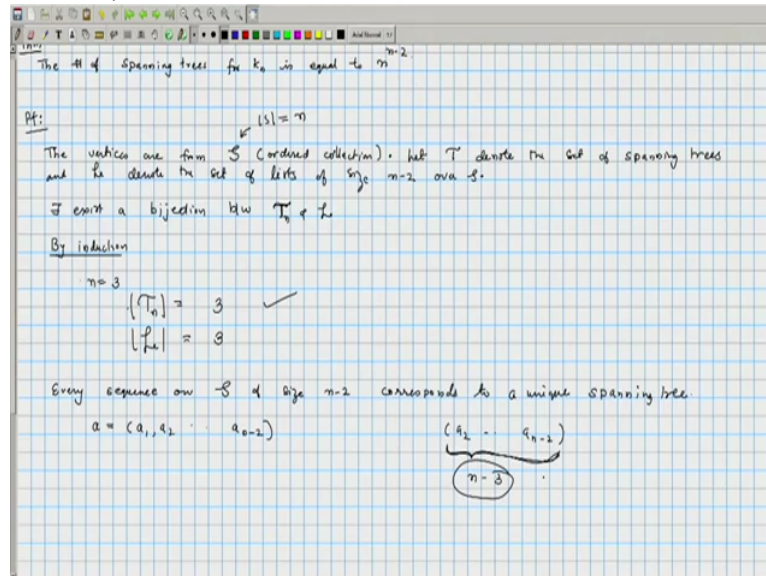 Thm:
The # of spanning trees for Kn is equal to n^{n-2}
Pf:
|S| = n
The vertices are from S (ordered collection). Let T denote the set of spanning trees
and L denote the set of lists of size n-2 over S.
∃ exist a bijection b/w Tn & L
By induction
n = 3
|Tn| = 3 ✓
|L| = 3
Every sequence on S of size n-2 corresponds to a unique spanning tree.
a = (a1, a2 .. an-2) (a2 .. an-2)
n-3